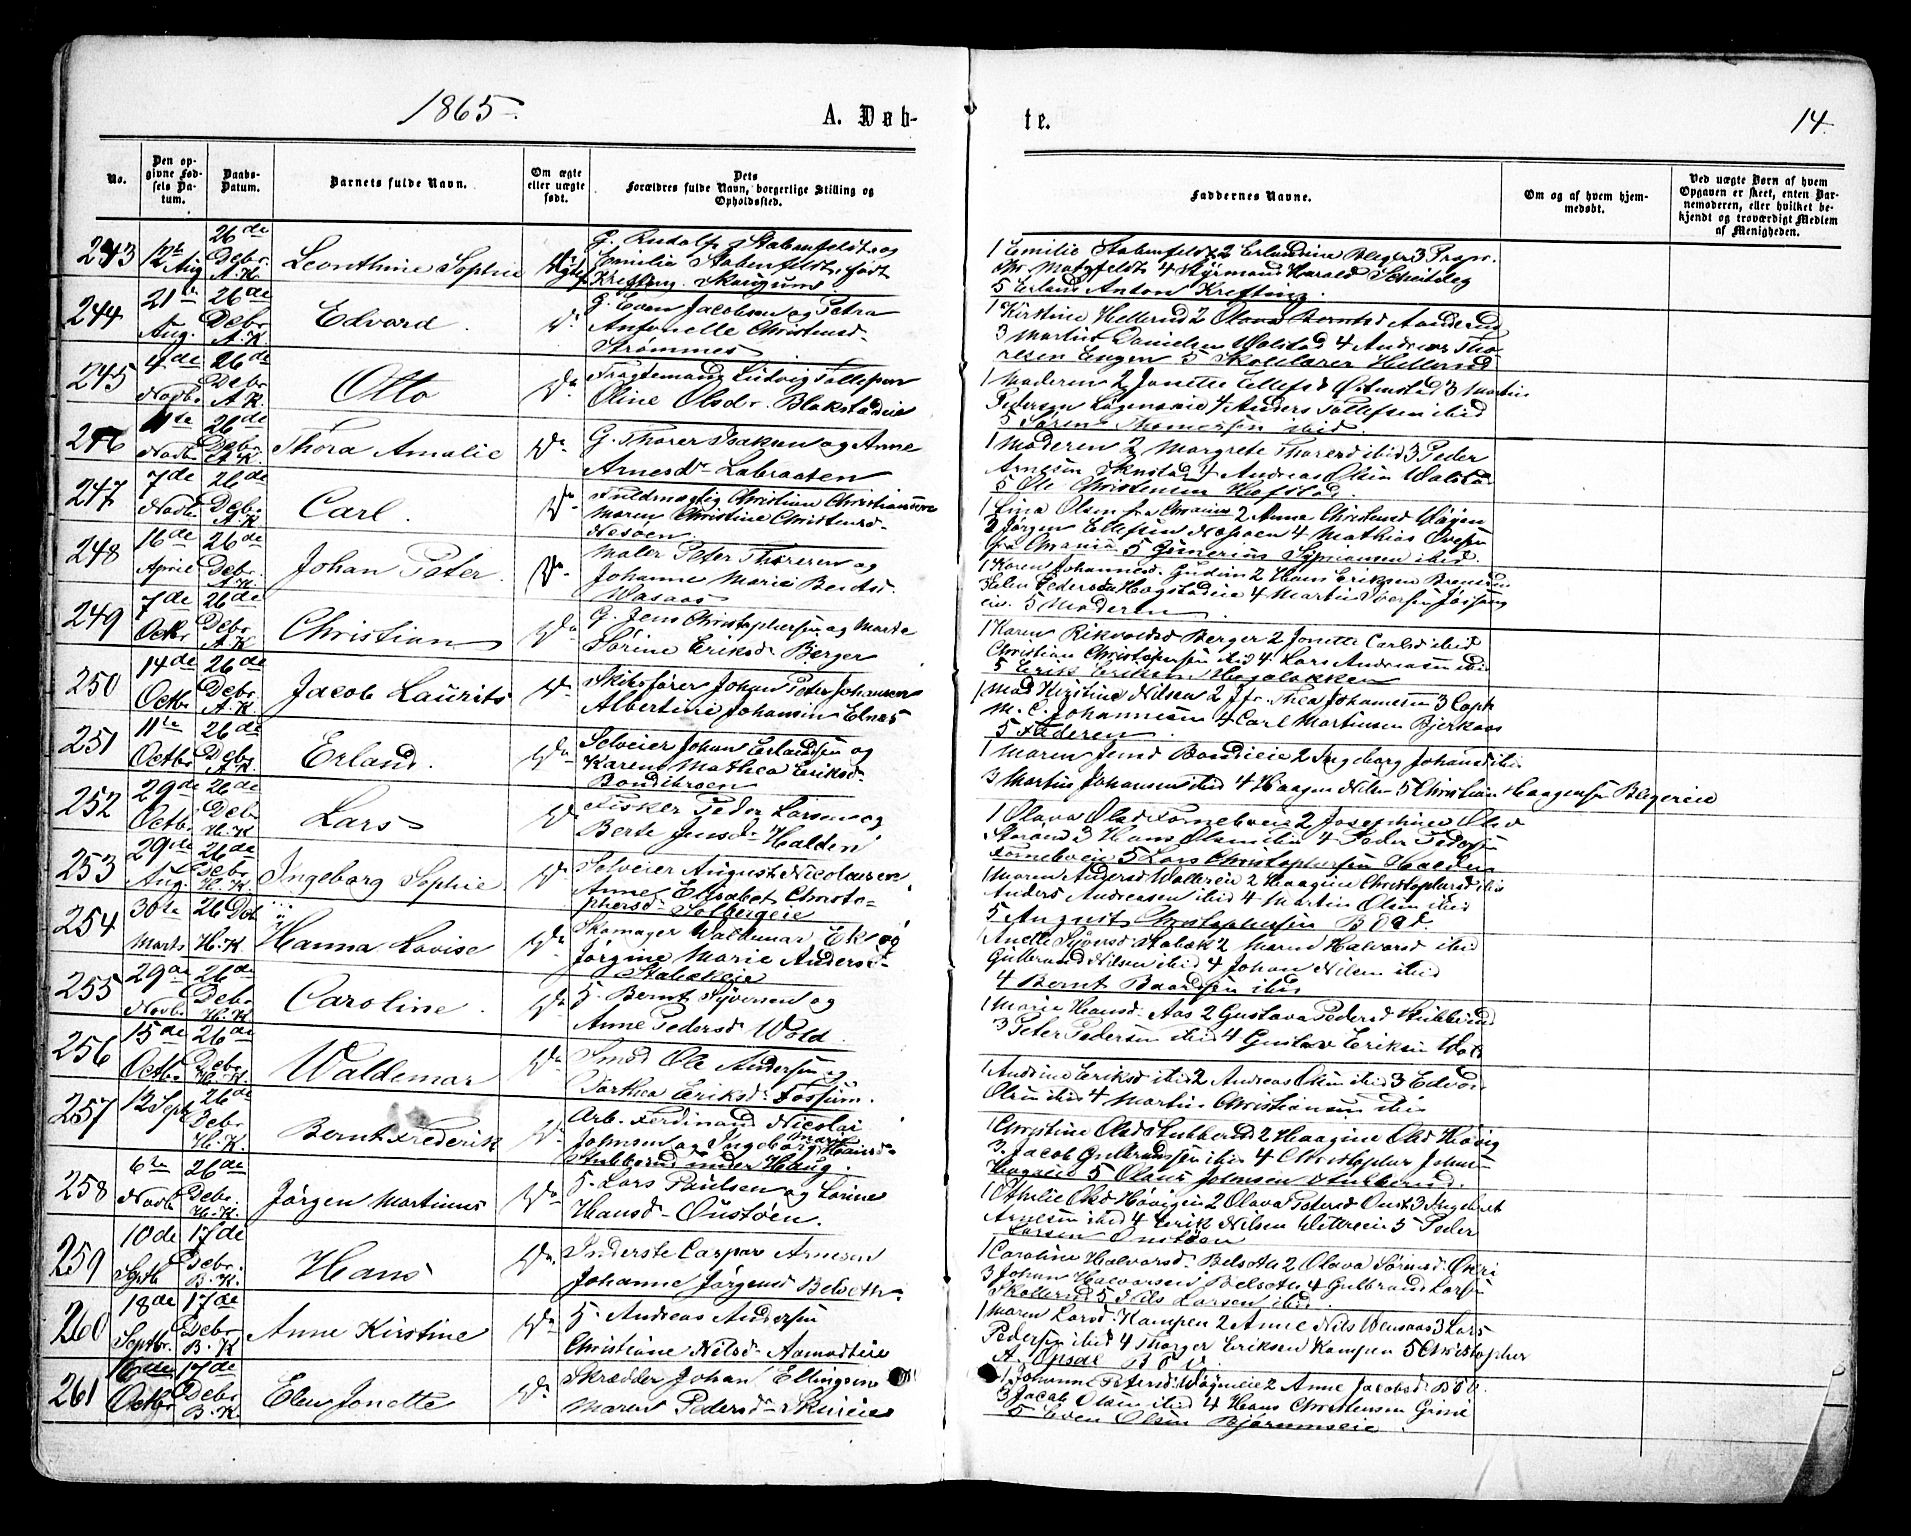 1865.
A. Døb-
te.
14.
No.
Den op-
givne Fød-
sels Da-
tum.
Daabs-
Datum.
Barnets fulde Navn.
Om ægte
eller uægte
født.
Dets
Forældres fulde Navn, borgerlige Stilling og
Opholdssted.
Faddernes Navne.
Om og af hvem hjem-
medøbt.
Ved uægte Børn af hvem
Opgaven er skeet, enten Bar-
nemoderen, eller hvilket be-
kjendt og troværdigt Medlem
af Menigheden.
243 12te Aug 26de Debr. A.K. Leonthine Sophie Ægte
G. Rudolf Stabenfeldt og
Emilie Stabenfeldt, født
Krefting. Skaugum.
1 Emilie Stabenfeldt 2 Erlandine Bleger 3 Prapr.
Matzfeldt 4 Styrmand Harald
5 Erland Anton Krefting.
244 21de Aug. 26de Debr. A.K. Edvard. Do.
G. Even Jacobsen og Petra
Antonette Christensd.
Strømmes
1 Kirstine Hellerud 2 Olava Berntsd
3 Martin Danielsen Wolstad 4 Andreas Tho-
resen Engen 5 Skolelærer Hellerud
245 4de Novbr 26de Debr. A.K. Otto Do.
Fragtemand Ludvig Tollefsen
Oline Olsdr. Blakstadeie
1 Moderen 2 Jonette Ellefsd 3 Martin
Pedersen 4 Anders Tollefsen ibid
5 Søren Thomesen ibid.
246 11te Novbr 26de Debr. A.K. Thora Amalie Do.
G. Thorer Isaksen og Anne
Arnesdr. Labraaten
1 Moderen 2 Margrete Thoresd ibid 3 Peder
Arnesen 4 Andreas Olsen Wolsta
5 Ole Christensen Hofstad.
247 7de Novbr 26de Debr. A.K. Carl. Do.
Fuldmægtig Christian Christiansen
Maren Christine Christensd.
Nesøen.
1 Lina Olsen fra 2 Anna Christensd
3 Jørgen Ellefsen Nesøen 4 Mathias
5 Gunerius Syversen ibid.
248 16de April 26de Debr. A.K. Johan Peter. Do.
Maler Peter Thoresen og
Johanne Marie Berntsd.
Wasaas
1 Karen Johannesd. Gudim 2 Hans Eriksen
Pedersen Hogstadeie 4 Martin Iversen
5 Moderen
249 7de Octbr. 26de Debr. A.K. Christian Do.
G. Jens Christophersen og Marte
Sørine Eriksd. Berger
1 Karen Rikvoldsd Berger 2 Jonette Carlsd ibid
Christian Christophersen ibid 4 Lars Andreasen ibid
5 Erik Eriksen
250 14de Octbr. 26de Debr. A.K. Jacob Laurits Do.
Skibsfører Johan Peter Johansen
Albertine Johansen Elnæs
1 Mad Kirstine Nilsen 2 Jfr. Thea Johannesen 3 Capt
M. C. Johannesen 4 Carl Martinsen Bjerkaas
5 Faderen.
251 11te Octbr 26de Debr. A.K. Erland. Do.
Selveier Johan Erlandsen og
Karen Mathea Eriksd.
Bondibroen
1 Maren Jensd Bondieie 2 Ingeborg Johansd ibid
3 Martin Johansen ibid 4 Haagen Nilsen 5 Christian Haagensen Blegereie
252 29de Octbr. 26de Debr. H.K. Lars Do.
Fisker Peder Larsen og
Berte Jensd. Halden
1 Olava Olsd Fornebveie 2 Josephine Olsd
3 Hans Olsen ibid 4 Peder Pedersen
Fornebveie 5 Lars Christophersen Halden
253 29de Aug. 26de Debr. H.K. Ingeborg Sophie Do.
Selveier August Nicolaisen
Anne Elisabet Christo-
phersd. Solbergeie
1 Maren Andersd Wollereie 2 Haagine Christophersd ibid
Anders Andreasen ibid 4 Martin Olsen ibid
5 August Christophersen
254 30te Marts 26 Dob. H.K. Hanna Lovise Do.
Skomager Waldemar Ek og
Jørgine Marie Andersd.
Stabækeie
1 Anette Syversd Stabæk 2 Maren Halvorsd ibid
Gulbrand Nilsen ibid 4 Johan Nilsen ibid
4 Bernt Baardsen ibid
255 29de Novbr 26de Debr. H.K. Caroline. Do.
G. Bernt Syversen og
Anne Pedersd. Wold
1 Marie Hansd. Aas 2 Gustava Pedersd Stubberud
3 Peter Pedersen ibid 4 Gustav Eriksen Wold
256 15de Octbr. 26de Debr. H.K. Waldemar Do.
Smed Ole Andersen og
Dorthea Eriksd. Fossum.
1 Andrine Eriksd ibid 2 Andreas Olsen ibid 3 Edvard
Olsen ibid 4 Martin Christiansen ibid
257 12 Septb 26de Debr. H.K. Bernt Frederik Do.
Arb. Ferdinand Nicolai
Johnsen og Ingeborg Marie Hansd.
Stubberud under Haug.
1 Christine Olsd Stubberud 2 Haagine Olsd Høvig
3. Jacob Gulbrandsen ibid 4 Christopher Johnsen
5 Olaus Johnsen Stubberud.
258 6te Novbr 26de Debr. H.K. Jørgen Martinus Do.
G. Lars Paulsen og Lorine
Hansd. Oustøen.
1 Othilie Olsd Høvigen 2 Olava Petersd Oust 3 Ingebret
Arnesen ibid 4 Erik Nilsen 5 Peder
Larsen Oustøen
259 10de Septb 17de Debr. B.K. Hans Do.
Inderste Casper Arnesen
Johanne Jørgensd Belseth.
1 Caroline Halvorsd. Belseth 2 Olava Sørensd.
3 Johan Halvorsen Belseth 4 Gulbrand Larsen
Skollerud 5 Nils Larsen ibid.
260 18de Septbr. 17de Debr. B.K. Anne Kirstine Do.
G. Andreas Andersen
Christiane Nilsd. Aamodteie
1 Maren Larsd. Kampen 2 Anne Nilsd Wensaas 3 Lars
Pedersen ibid 4 Thorger Eriksen Kampen 5 Christopher
A. Opsal
261 16de Octbr 17de Debr. B.K. Elen Jonette Do.
Skrædder Johan Ellingsen
Maren Pedersd. Skuieie
1 Johanne Petersd. 2 Anne Jacobsd.
3 Jacob Olsen ibid 4 Hans Christensen Grini
5 Even Olsen Bjerumseie.